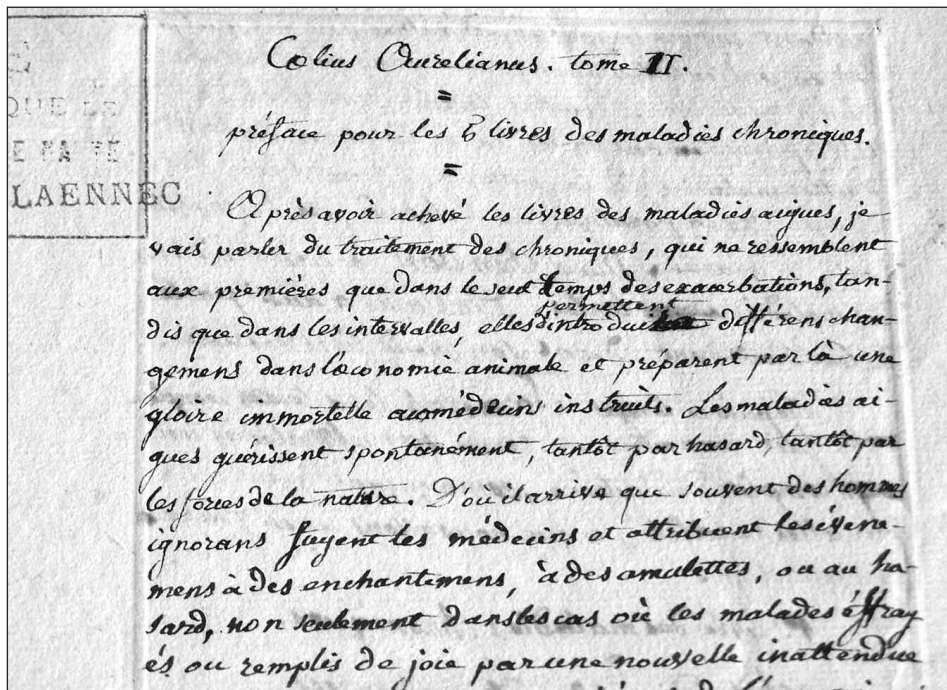 Cœlius Aurelianus. tome II.
=
préface pour les 5 livres des maladies chroniques.
=
QUE LE
E NA TE
LAENNEC
Après avoir achevé les livres des maladies aigues, je
vais parler du traitement des chroniques, qui ne ressemblent
aux premières que dans le seul temps des exacerbations, tan-
dis que dans les intervalles, elles permettent d'introdui différens chan-
gemens dans l'œconomie animale et préparent par là une
gloire immortelle aux médecins instruits. Les maladies ai-
gues guérissent spontanément, tantôt par hasard, tantôt par
les forces de la nature. D'où il arrive que souvent des hommes
ignorans fuyent les médecins et attribuent les évene-
mens à des enchantemens, à des amulettes, ou au ha-
sard, non seulement dans les cas où les malades effray
és ou remplis de joie par une nouvelle inattendue